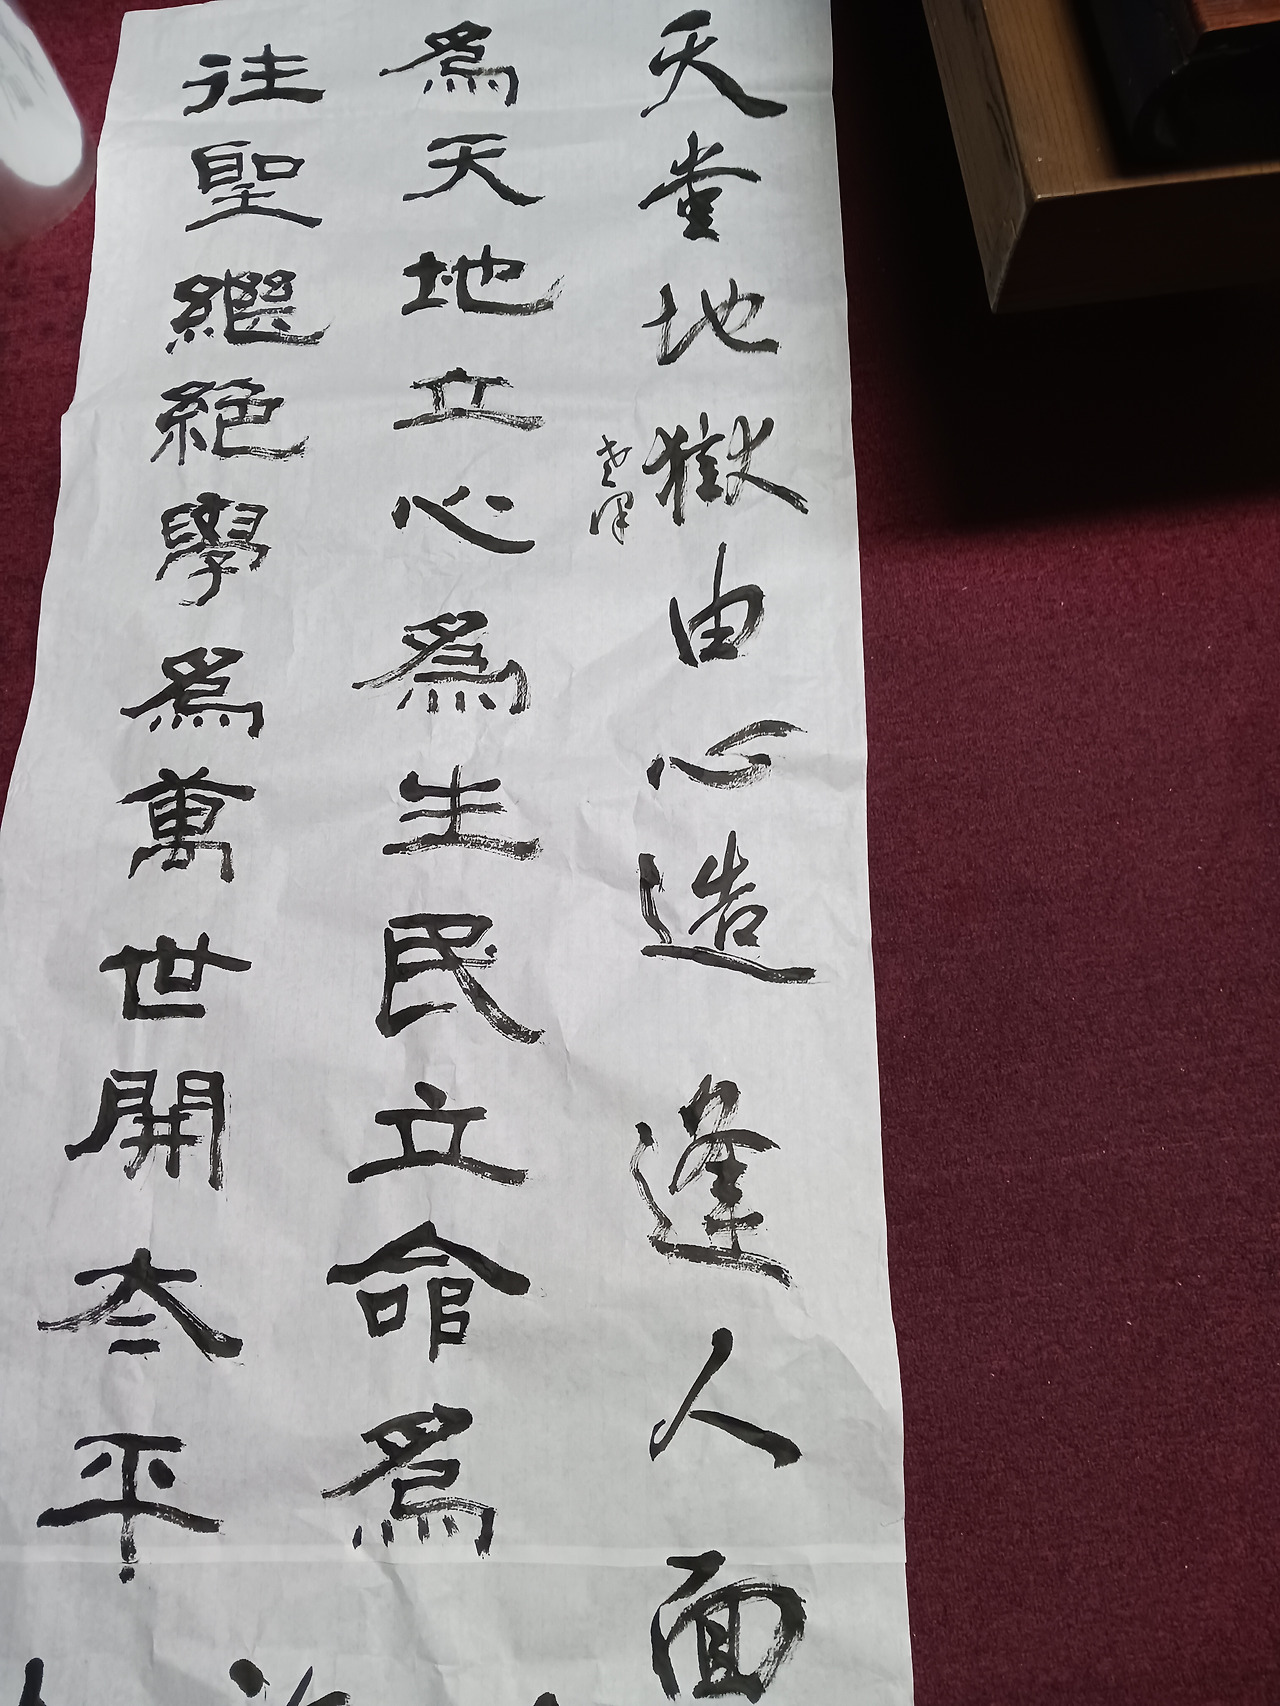 天堂地獄由心造逢人面
為天地立心為生民立命為
往聖繼絕學為萬世開太平